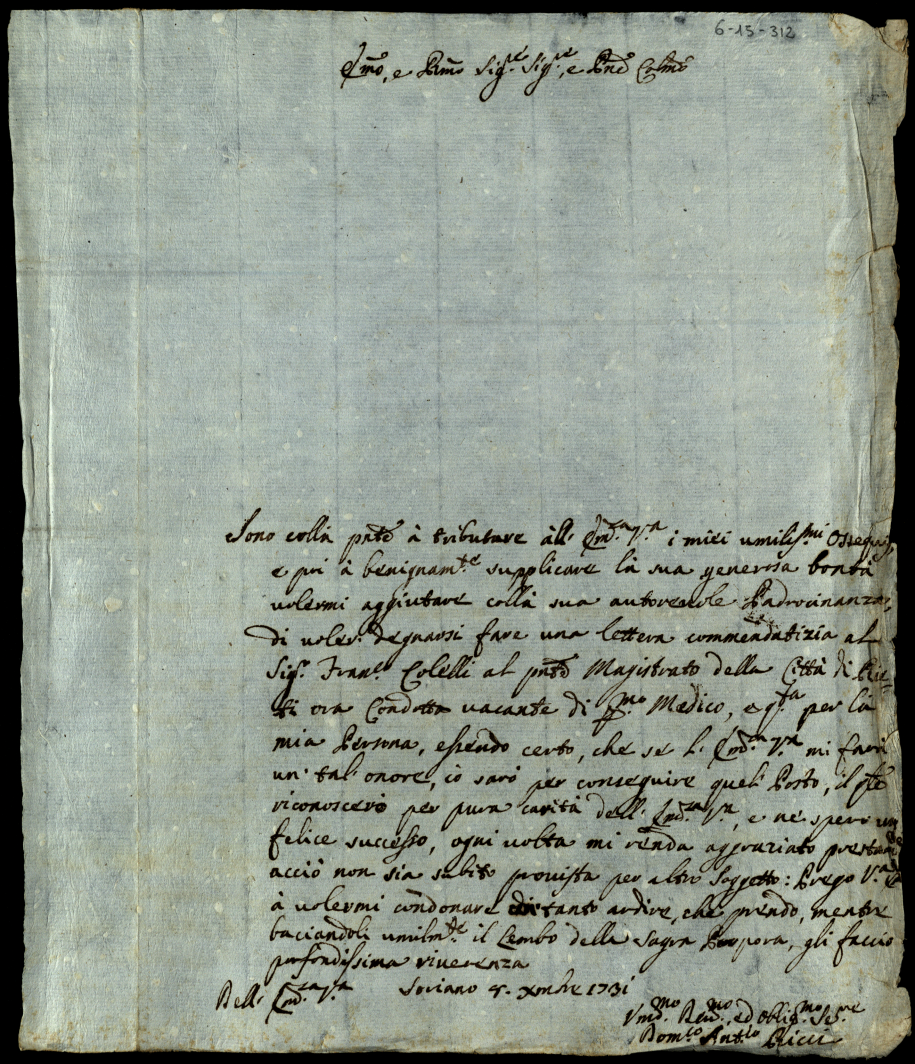 6-15-312
Emo, e Rmo Sig.re Sig.re, e Pne Colmo
Sono colla pnte à tributare all' Em.za V.a i miei umilis.mi Ossequj,
e poi à benignam.te supplicare la sua generosa bontà
volermi aggiutare colla sua autorevole Padrocinanza,
di voler' degnarsi fare una lettera commendatizia al
Sig.r Fran.co Colelli al pnte Magistrato della Città di Rie-
ti ora Condotta vacante di p.mo Medico, e q.ta per la
mia Persona, essendo certo, che se l' Em.za V.a mi farà
un' tal' onore, io sarò per conseguire quel' Posto, il che
riconoscerò per pura carità dell' Em.za V.a, e ne spero un
felice successo, ogni volta mi renda aggraziato
acciò non sia subito provista per altro Soggetto: Prego V.a
à volermi condonare di tanto ardire, che prendo, mentre
baciandoli umilm.te il Lembo della Sagra Porpora, gli faccio
profondissima riverenza
Dell' Em.za V.a Soriano 4. Xmbre 1731
Vmo Dev.mo, ed Oblig.mo Se.re
Dom.co Ant.io Ricci